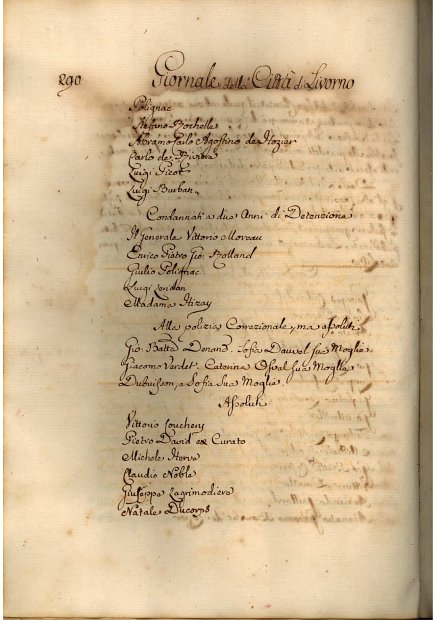 290 Giornale della Città di Livorno
Polignac
Stefano Rochelle
Abramo Carlo Agostino de Hozier
Carlo de Riviere
Luigi Picot
Luigi Burban.
Condannati a due Anni di Detenzione
Il Generale Vittorio Moreau
Enrico Pietro Gio: Rolland
Giulio Polignac
Luigi
Madama Hizay
Alla polizia Correzionale, ma assoluti
Gio: Batta Denand. Sofia Duval sua Moglie
Giacomo Verdet. Caterina Osval sua Moglie
Dubuisson, a Sofia sua Moglie
Assoluti
Vittorio Couchery
Pietro David ex Curato
Michele Herve
Claudio Noble
Giuseppe Lagrimodiere
Natale Ducorps